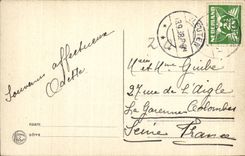 Souvenir affectueux
Odette
NAAM:
ADRES:
NEDERLAND
Mr et Mme Guibe
27 rue de l'Aigle
La Garenne-Colombes
Seine France